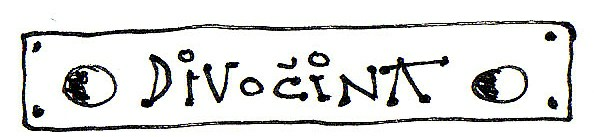 DiVOČiNA